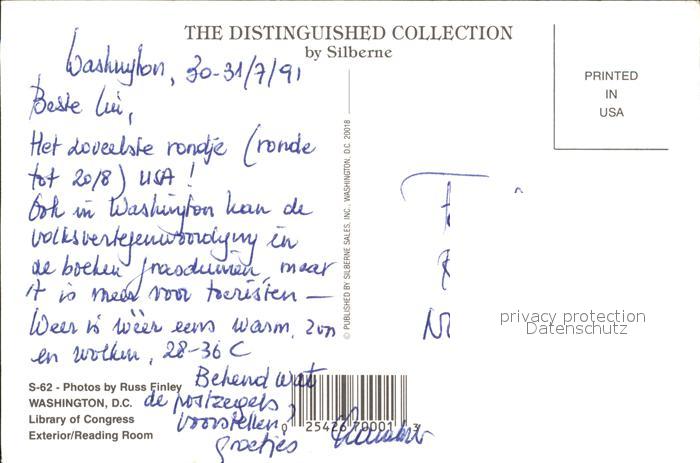 THE DISTINGUISHED COLLECTION
by Silberne
PRINTED
IN
USA
Washington, 30-31/7/91
Beste
Het zoveelste rondje (ronde
tot 20/8) USA!
Ook in Washington kan de
volksvertegenwoordiging in
de boeken grasduinen, maar
't is meer voor toeristen —
Weer is wéér eens warm, zon
en wolken, 28-36 C
Behend wat
de postzegels
voorstellen?
groetjes
© PUBLISHED BY SILBERNE SALES, INC., WASHINGTON, D.C. 20018
S-62 - Photos by Russ Finley
WASHINGTON, D.C.
Library of Congress
Exterior/Reading Room
0 25426 70001 3
privacy protection
Datenschutz